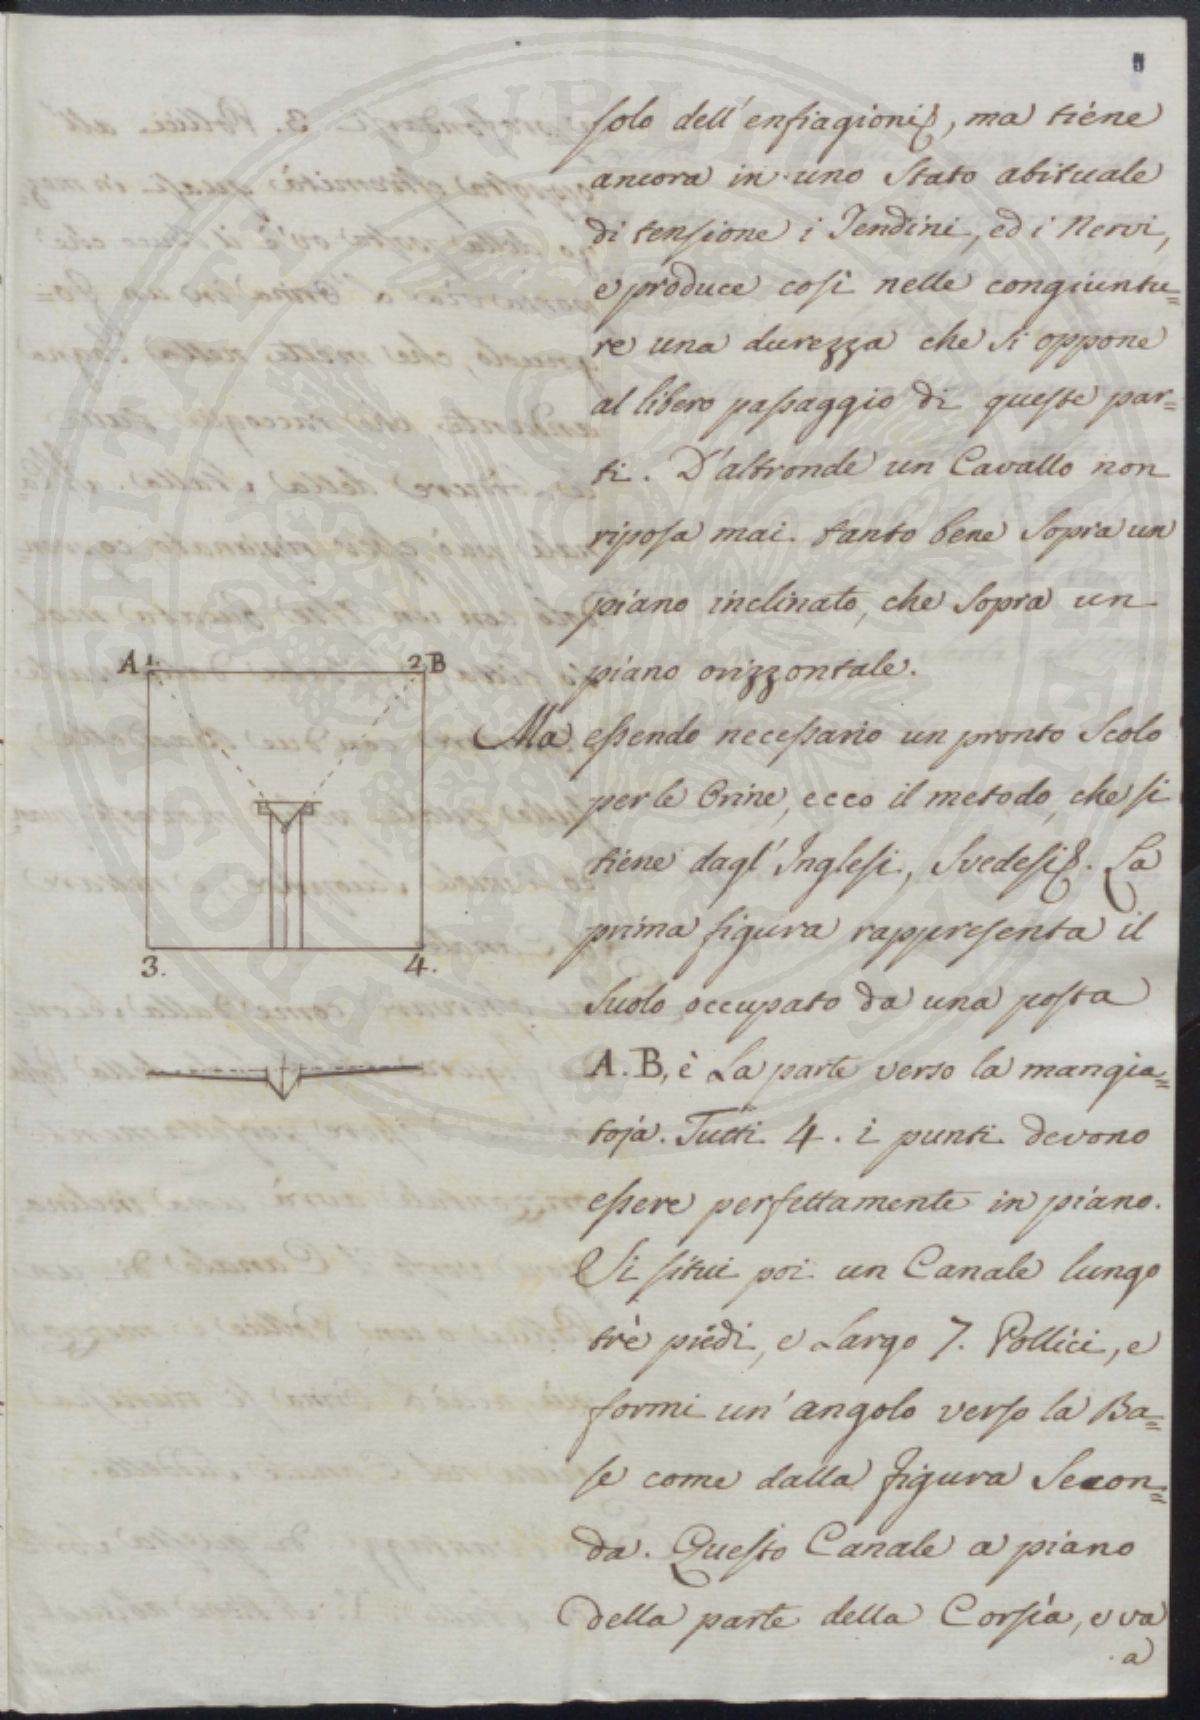 solo dell'enfiagioni, ma tiene
ancora in uno Stato abituale
di tensione i Tendini, ed i Nervi,
e produce così nelle congiuntu=
re una durezza che si oppone
al libero passaggio di queste par=
ti. D'altronde un Cavallo non
riposa mai tanto bene sopra un
piano inclinato, che sopra un
piano orizzontale.
Ma essendo necessario un pronto Scolo
per le Orine, ecco il metodo, che si
tiene dagl'Inglesi, Svedesi. La
prima figura rappresenta il
Suolo occupato da una posta
A. B, è La parte verso la mangia=
toja. Tutti 4. i punti devono
essere perfettamente in piano.
Si situi poi un Canale lungo
trè piedi, e Largo 7. Pollici, e
formi un'angolo verso la Ba=
se come dalla figura Secon=
da. Questo Canale a piano
della parte della Corsìa, e va
a
A 1. 2 B
3. 4.